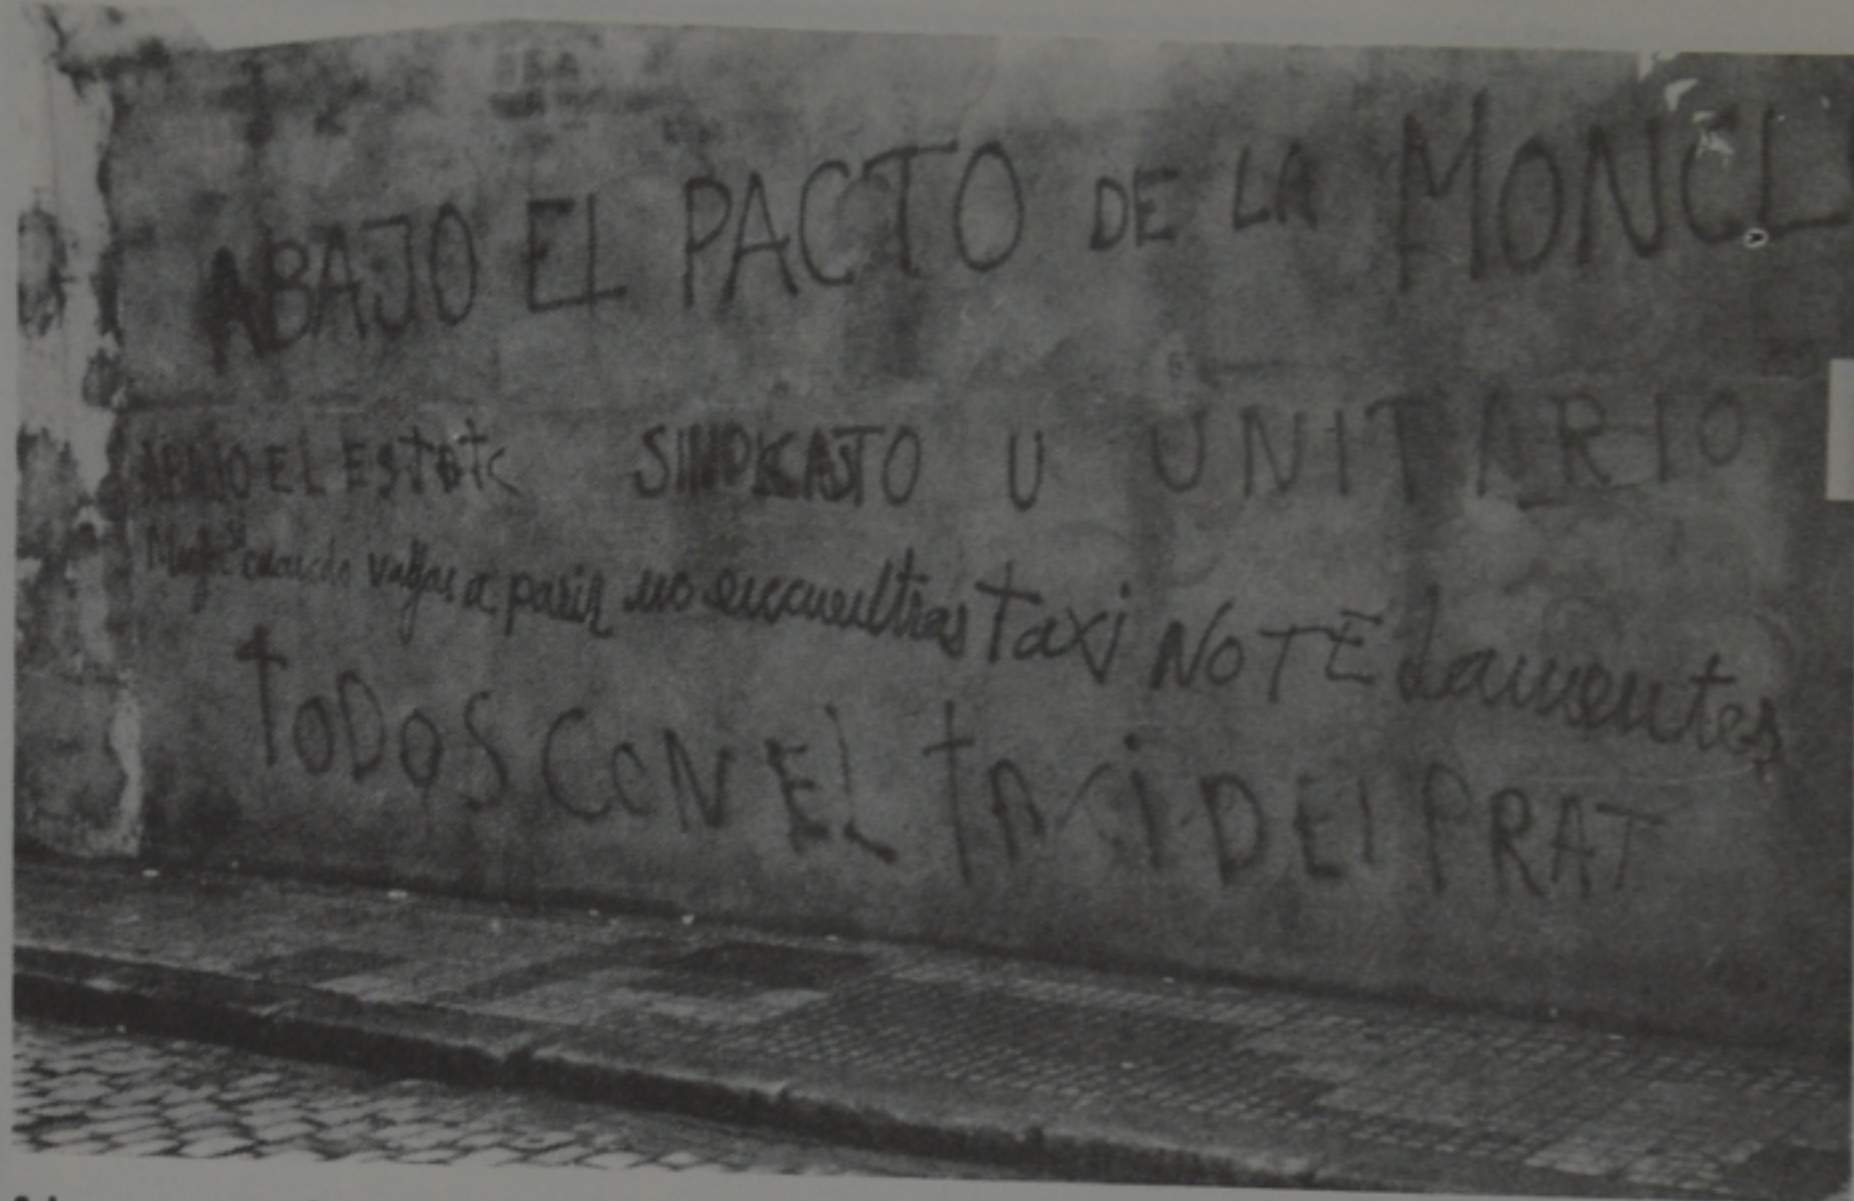 ABAJO EL PACTO DE LA MONCL
ABAJO EL ESTAT SINDICATO U UNITARIO
Mujer si cuando vallas a parir no encuentras taxi NO TE Lamentes
TODOS CON EL TAXI DEL PRAT